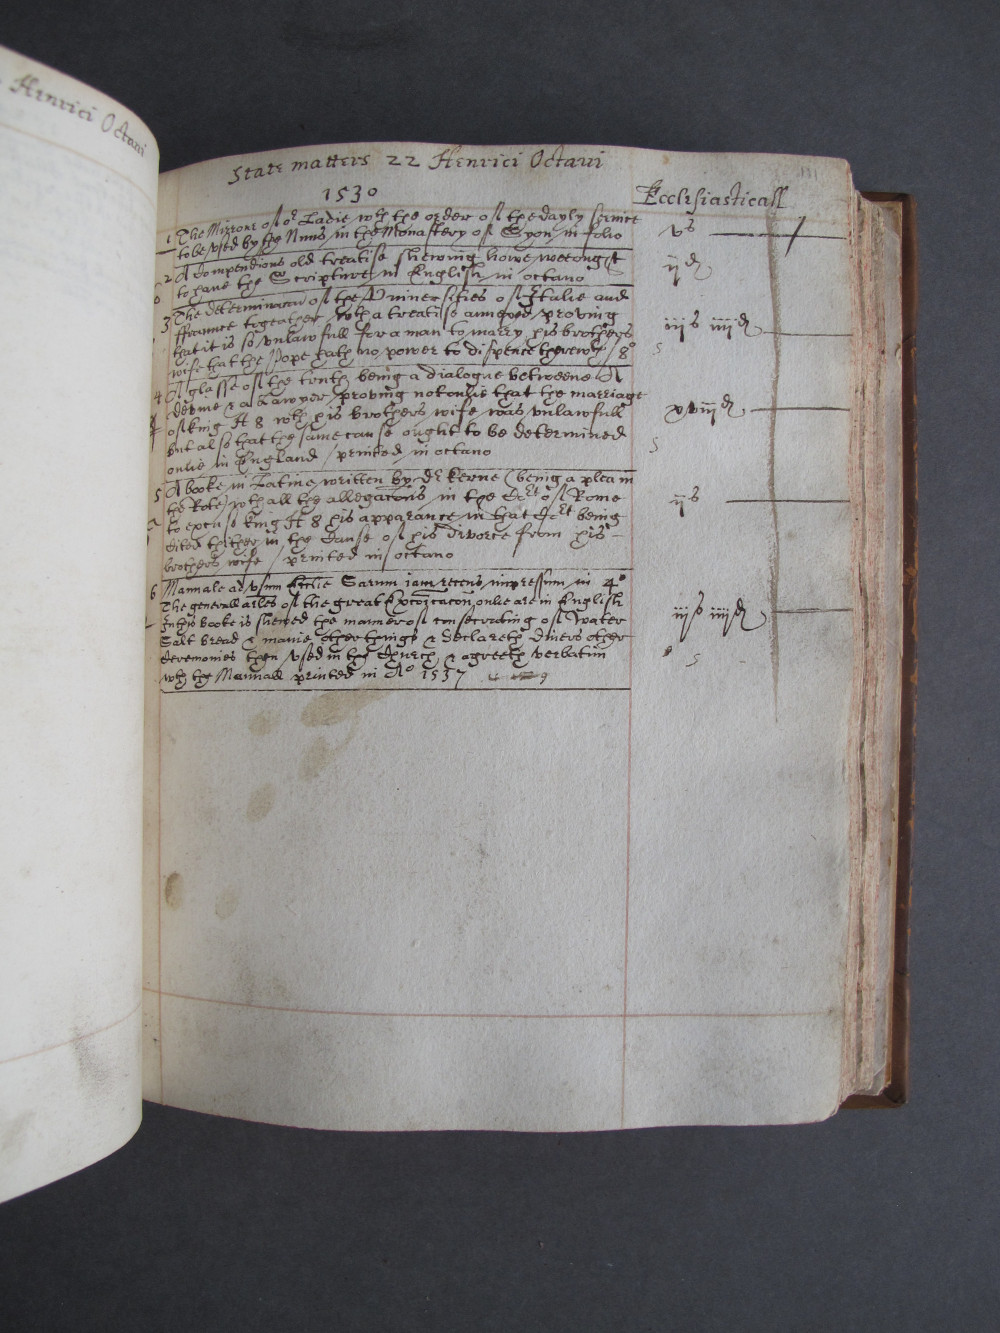 Henrici Octaui
111
State matters 22 Henrici Octaui
1530
Ecclesiasticall
1 The Mirrour of or Ladie wth the order of the dayly seruice
to be vsed by the Nuns in the Monastery of Syon in folio
vs
2 A compendious old treatise shewing howe wee ought
to haue the Scripture in English in octauo
ijd
3 The determinacon of the Vniuersities of Italie and
ffraunce togeather wth a treatise annexed proving
that it is so vnlawfull for a man to marry his brothers
wife that the Pope hath no power to dispence therewth / 8o
iijs iiijd
5
4 A glasse of the truth being a dialogue betweene A
deuine & a Lawyer proving not onlie that the marriage
of king H 8 wth his brothers wife was vnlawfull
but also that the same cause ought to be determined
onlie in England / printed in octauo
xviijd
5
5 A booke in Latine written by Dr Kerne (being a plea in
the Rote) wth all the allegacons in the Cort of Rome
to excuse king H 8 his apparance in that Cort being
cited thither in the cause of his divorce from his
brothers wife / printed in octauo
ijs
6 Manuale ad vsum Ecclie Sarum iam recens impressum in 4o
The generall articles of the great Excoicacon onlie are in English
In this booke is shewed the manner of consecrating of Water
Salt bread & manie other things & declareth divers other
Ceremonies then vsed in the Church & agreeth verbatim
wth the Manuall printed in Ao 1537
ijs iiijd
5